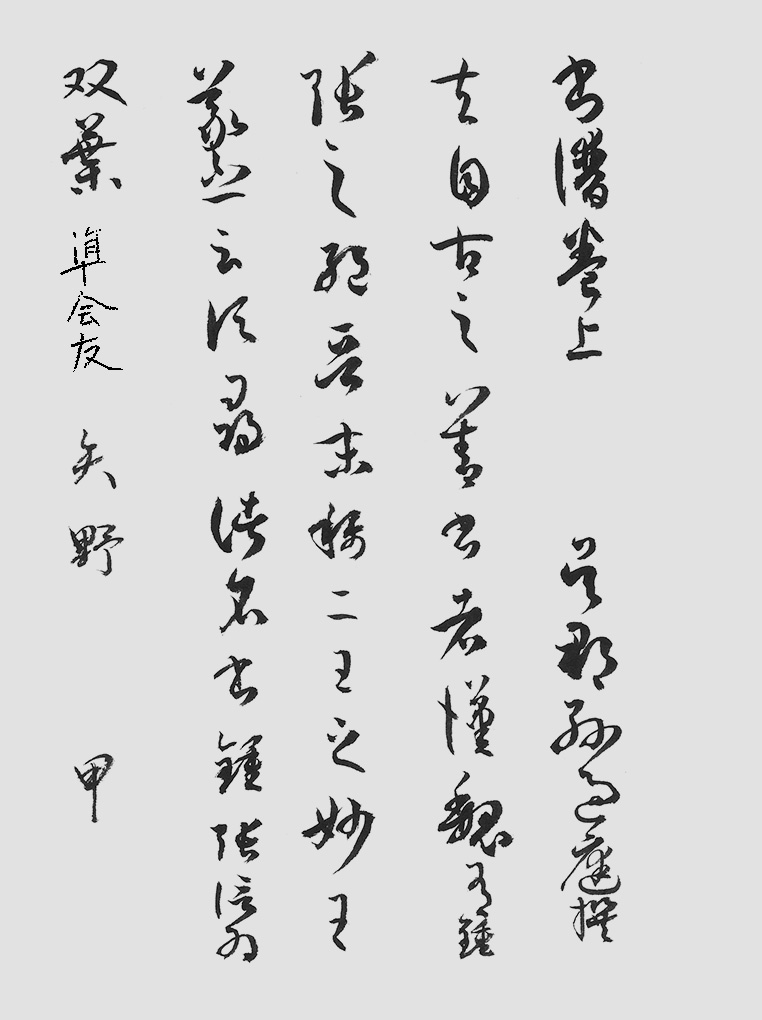 書譜卷上 吳郡孫過庭撰
夫自古之善書者漢魏有鍾
張之絕晉末稱二王之妙王
羲之云頃尋諸名書鍾張信為
双葉 準会友 矢野 甲